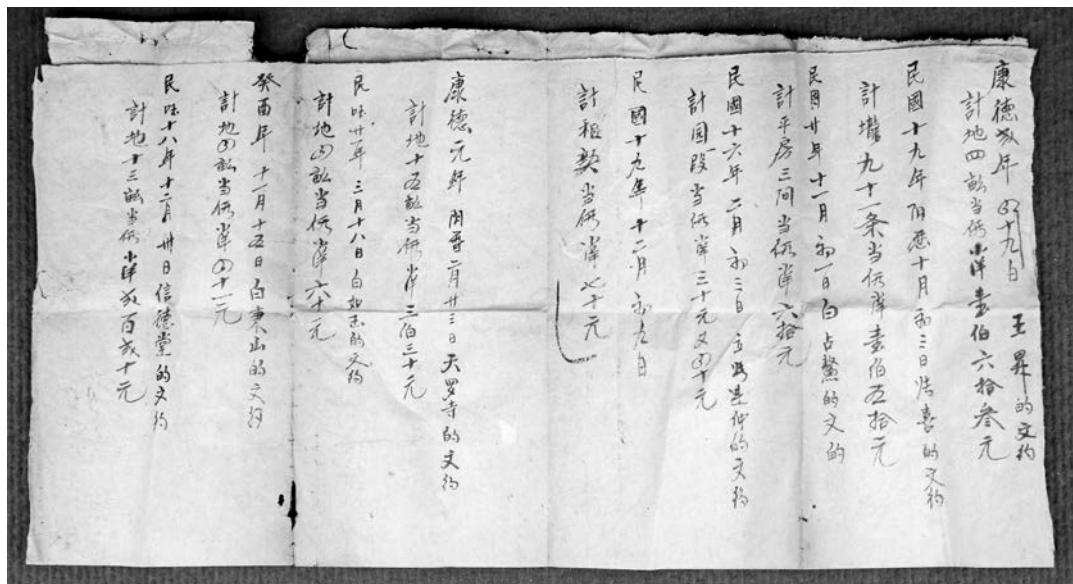 康德弍年 四十九日 王昇的文约
計地四畝当價小洋壹伯六拾叁元
民國十九年阴歷十月初三日 喜的文约
計壠九十一条当價洋壹伯五拾元
民國廿年十一月初一日白占鰲的文約
計平房三间当價洋六拾元
民國十六年二月初三日 仲的文约
計园段当價洋三十元又四十元
民國十九年十二月初九日
計租契当價洋七十元
康德元年 閏 二月廿三日天罗寺的文约
計地十五畝当價洋三伯三十元
民国廿一年三月十八日白如玉的文约
計地四畝当價洋六十元
癸酉年十一月十五日白東山的文约
計地四畝当價洋四十一元
民国十八年十二月卅日信德堂的文约
計地十三畝当價小洋弍百弍十元